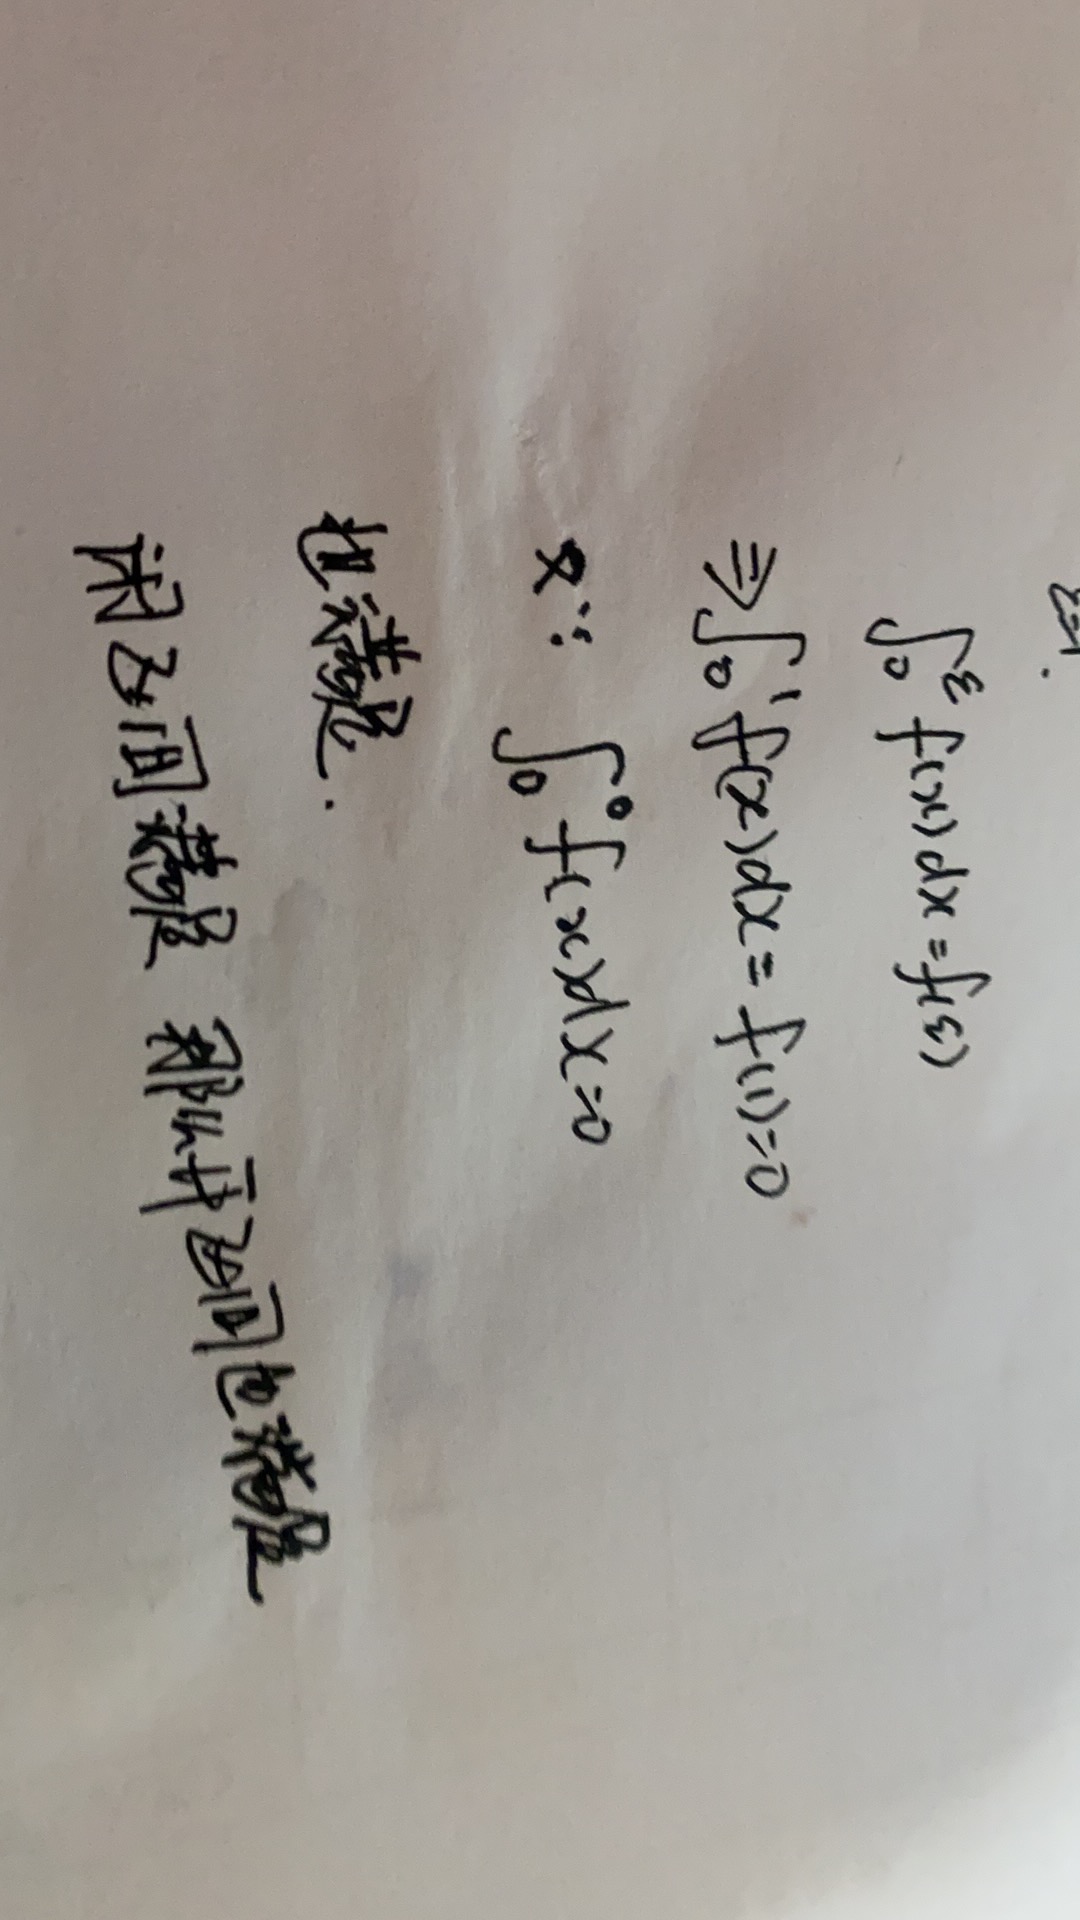 ∫₀³ f(x)dx = f(3)
⇒ ∫₀¹ f(x)dx = f(1)=0
又∵ ∫₀⁰ f(x)dx=0
也满足.
闭区间满足 那么开区间也满足